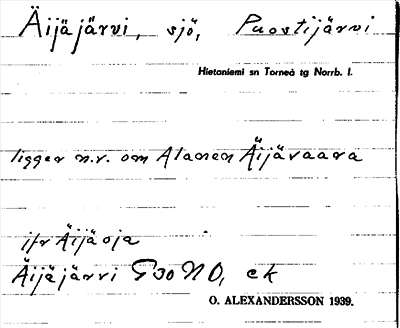 Äijäjärvi, sjö, Puostijärvi
Hietaniemi sn Torneå tg Norrb. l.
ligger n.v. om Alanen Äijävaara
jfr Äijäoja
Äijäjärvi G30NO, ek
O. ALEXANDERSSON 1939.